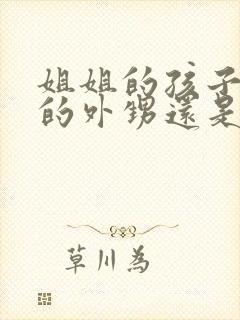 姐姐的孩子
的外甥還是
草川為